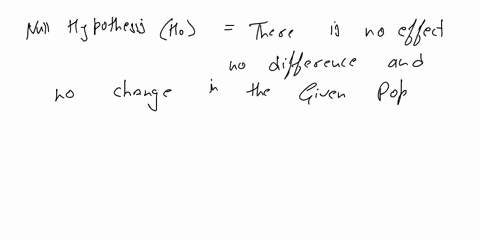 Null Hypothesis (H0) = There is no effect
no difference and
no change in the Given Pop